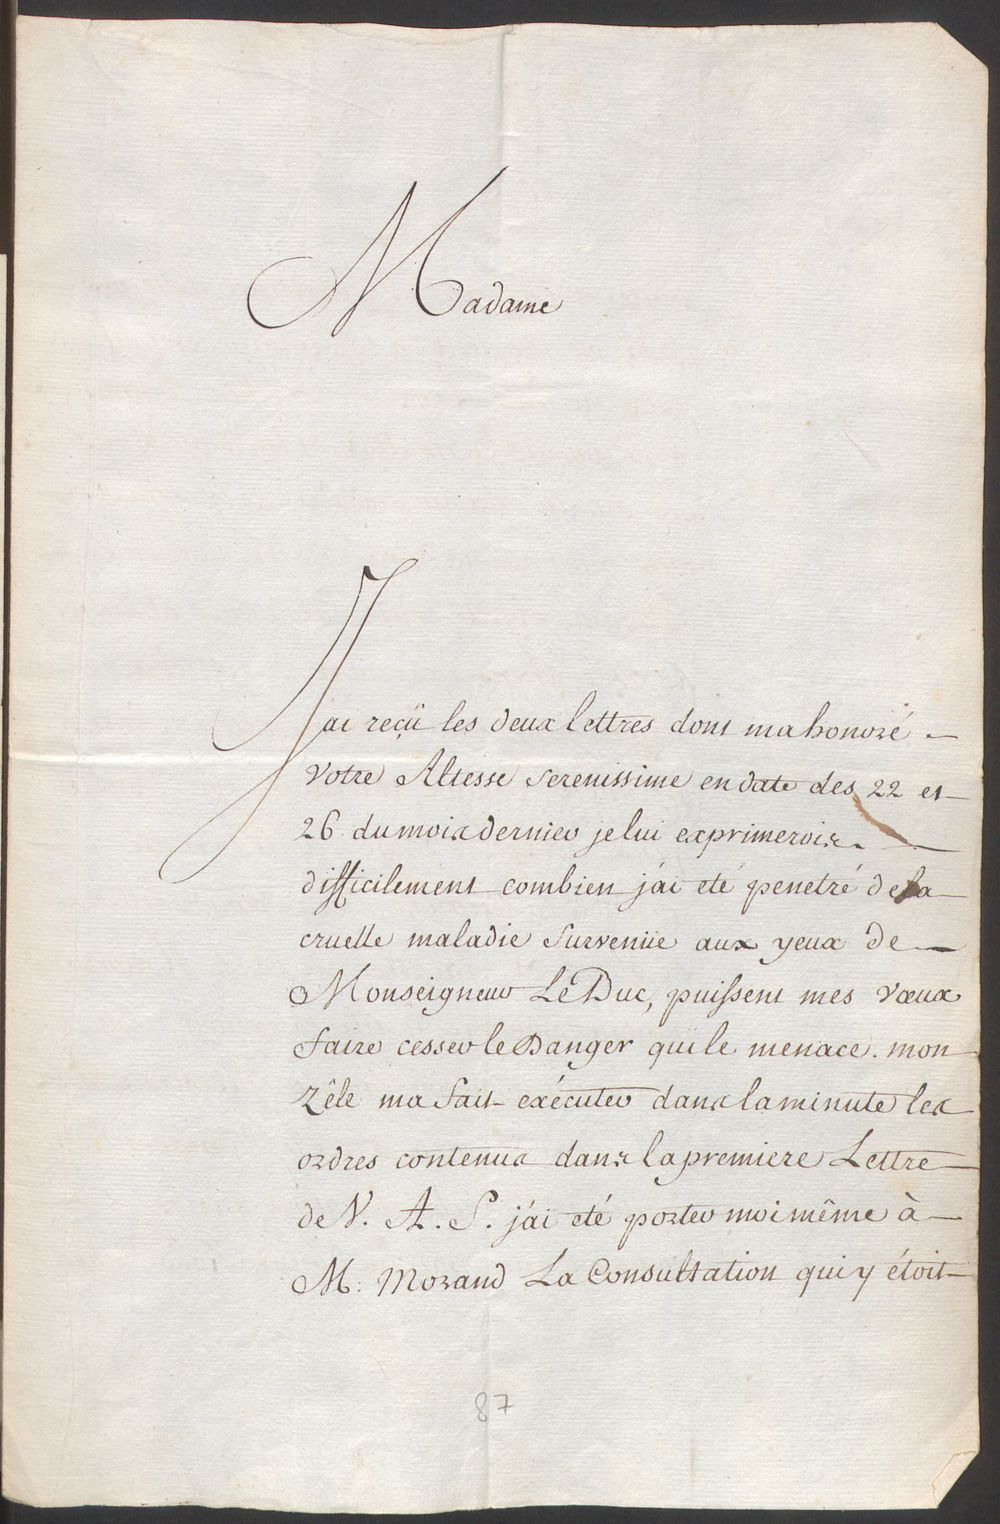 Madame
Jai reçû les deux lettres dont ma honoré
Votre Altesse Serenissime en date des 22 et
26 du mois dernier je lui exprimerois
difficilement combien j'ai eté penetré de la
cruelle maladie Survenüe aux yeux de
Monseigneur Le Duc, puissent mes vœux
faire cesser le Danger qui le menace. mon
Zêle ma fait exécuter dans la minute les
ordres contenus dans la premiere Lettre
de V. A. S. j'ai eté porter moi même à
M. Morand La Consultation qui y étoit
87